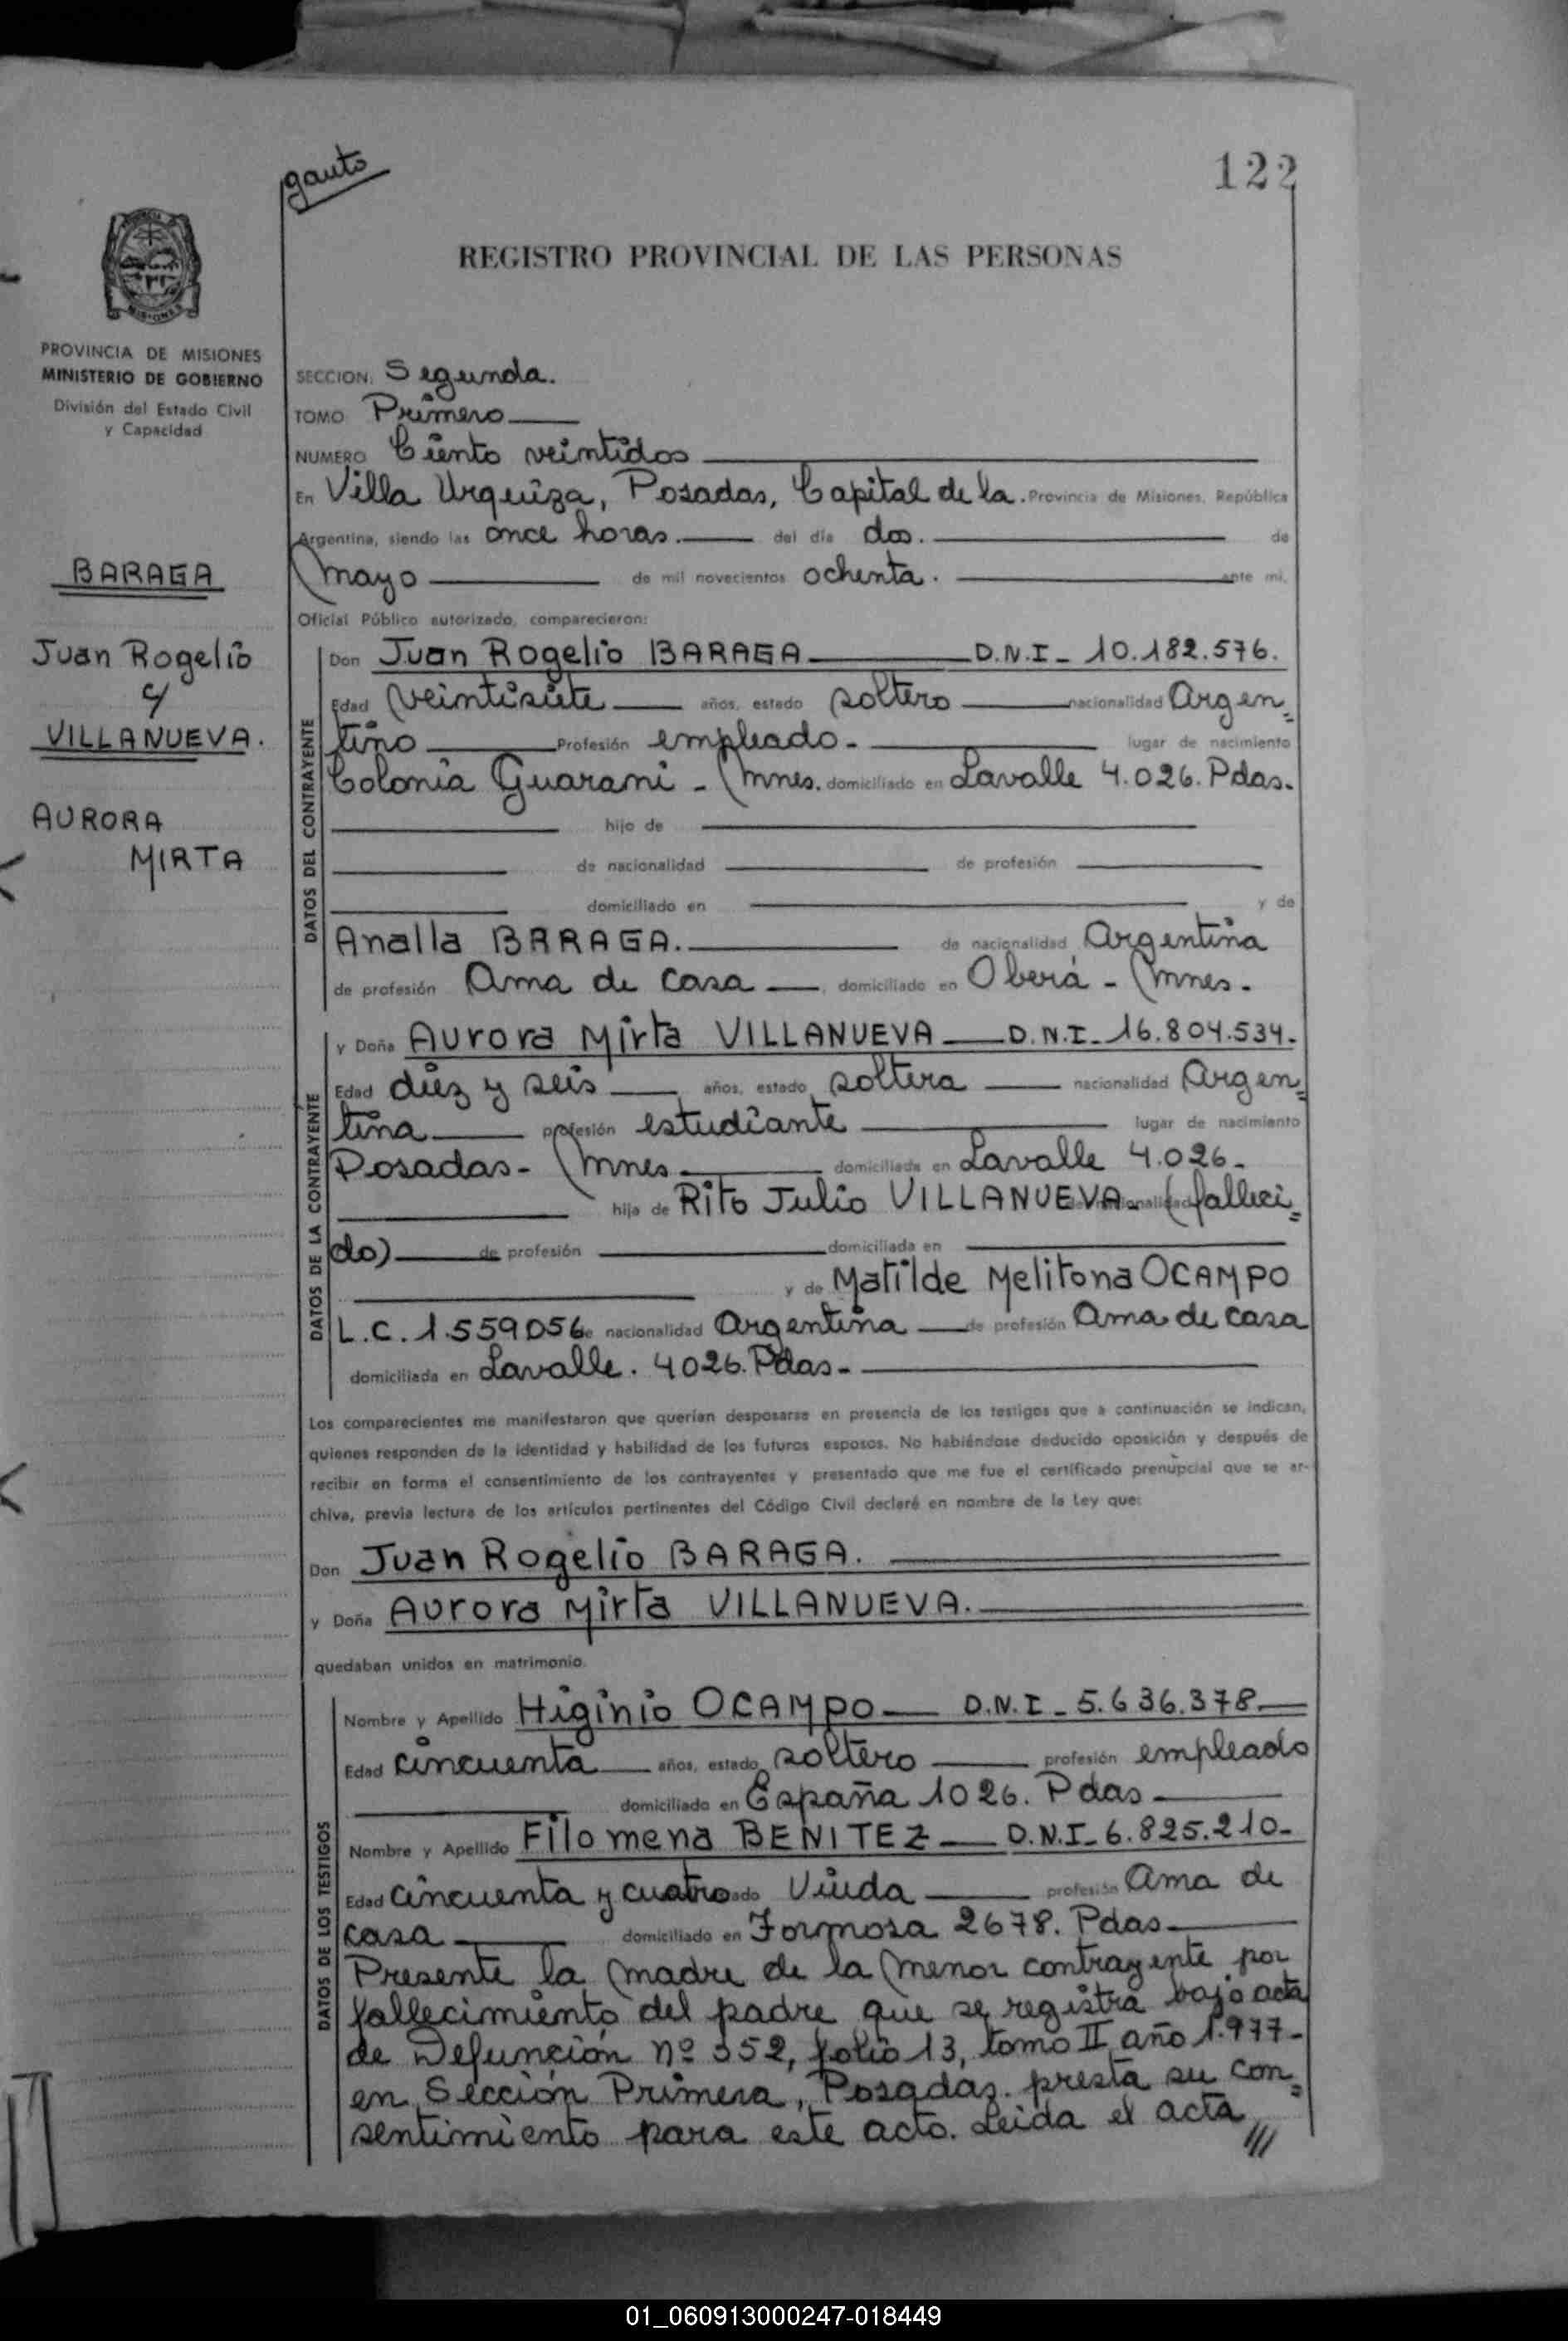 gauto
122
REGISTRO PROVINCIAL DE LAS PERSONAS
PROVINCIA DE MISIONES
MINISTERIO DE GOBIERNO
División del Estado Civil
y Capacidad
BARAGA
Juan Rogelio
y
VILLANUEVA.
AURORA
MIRTA
SECCION: Segunda.
TOMO Primero
NUMERO Ciento veintidos
En Villa Urquiza, Posadas, Capital de la. Provincia de Misiones, República
Argentina, siendo las once horas. del día dos. de
mayo de mil novecientos ochenta. ante mi,
Oficial Público autorizado, comparecieron:
DATOS DEL CONTRAYENTE
Don Juan Rogelio BARAGA D.N.I- 10.182.576.
Edad veintisiete años, estado soltero nacionalidad Argen=
tino Profesión empleado- lugar de nacimiento
Colonia Guarani - Mnes. domiciliado en Lavalle 4.026. Pdas.
hijo de
de nacionalidad de profesión
domiciliado en y de
Analia BARAGA. de nacionalidad Argentina
de profesión Ama de casa, domiciliado en Oberá - Mnes.
DATOS DE LA CONTRAYENTE
y Doña Aurora Mirta VILLANUEVA D.N.I- 16.804.534-
Edad diez y seis años, estado soltera nacionalidad Argen=
tina profesión estudiante lugar de nacimiento
Posadas- Mnes domiciliada en Lavalle 4.026-
hija de Rito Julio VILLANUEVA- (falleci=
do) de profesión domiciliada en
y de Matilde Melitona OCAMPO
L.C. 1.559056 de nacionalidad Argentina de profesión Ama de casa
domiciliada en Lavalle. 4026. Pdas-
Los comparecientes me manifestaron que querían desposarse en presencia de los testigos que a continuación se indican,
quienes responden de la identidad y habilidad de los futuros esposos. No habiéndose deducido oposición y después de
recibir en forma el consentimiento de los contrayentes y presentado que me fue el certificado prenupcial que se ar-
chiva, previa lectura de los artículos pertinentes del Código Civil declaré en nombre de la Ley que:
Don Juan Rogelio BARAGA.
y Doña Aurora Mirta VILLANUEVA.
quedaban unidos en matrimonio.
DATOS DE LOS TESTIGOS
Nombre y Apellido Higinio OCAMPO D.N.I- 5.636.378
Edad cincuenta años, estado soltero profesión empleado
domiciliado en España 1026. Pdas
Nombre y Apellido Filomena BENITEZ D.N.I- 6.825.210-
Edad cincuenta y cuatro Viuda profesión Ama de
casa domiciliado en Formosa 2678. Pdas
Presente la madre de la menor contrayente por
fallecimiento del padre que se registra bajo acta
de Defunción nº 352, folio 13, tomo II año 1.977-
en Sección Primera, Posadas. presta su con=
sentimiento para este acto. Leida el acta ///
01_060913000247-018449